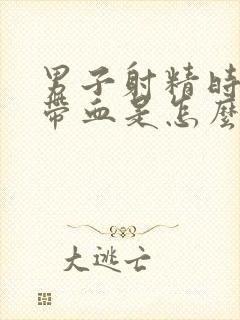 男子射精時
帶血是怎麼
大逃亡